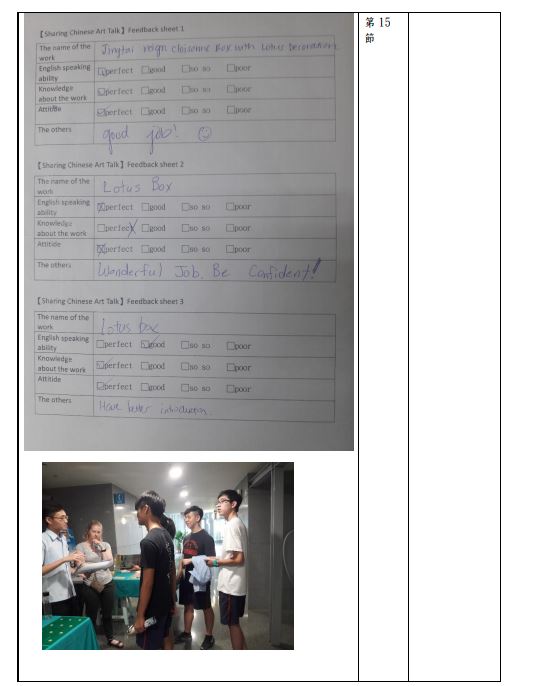 【Sharing Chinese Art Talk】Feedback sheet 1
The name of the work
Jingtai reign cloisonne Box with Lotus Decoration
English speaking ability
☑perfect □good □so so □poor
Knowledge about the work
☑perfect □good □so so □poor
Attitide
☑perfect □good □so so □poor
The others
good job! ☺
【Sharing Chinese Art Talk】Feedback sheet 2
The name of the work
Lotus Box
English speaking ability
☒perfect □good □so so □poor
Knowledge about the work
□perfect □good □so so □poor
Attitide
☒perfect □good □so so □poor
The others
Wonderful Job. Be Confident!
【Sharing Chinese Art Talk】Feedback sheet 3
The name of the work
Lotus box
English speaking ability
□perfect ☑good □so so □poor
Knowledge about the work
☑perfect □good □so so □poor
Attitide
☑perfect □good □so so □poor
The others
Have better introduction.
第 15
節